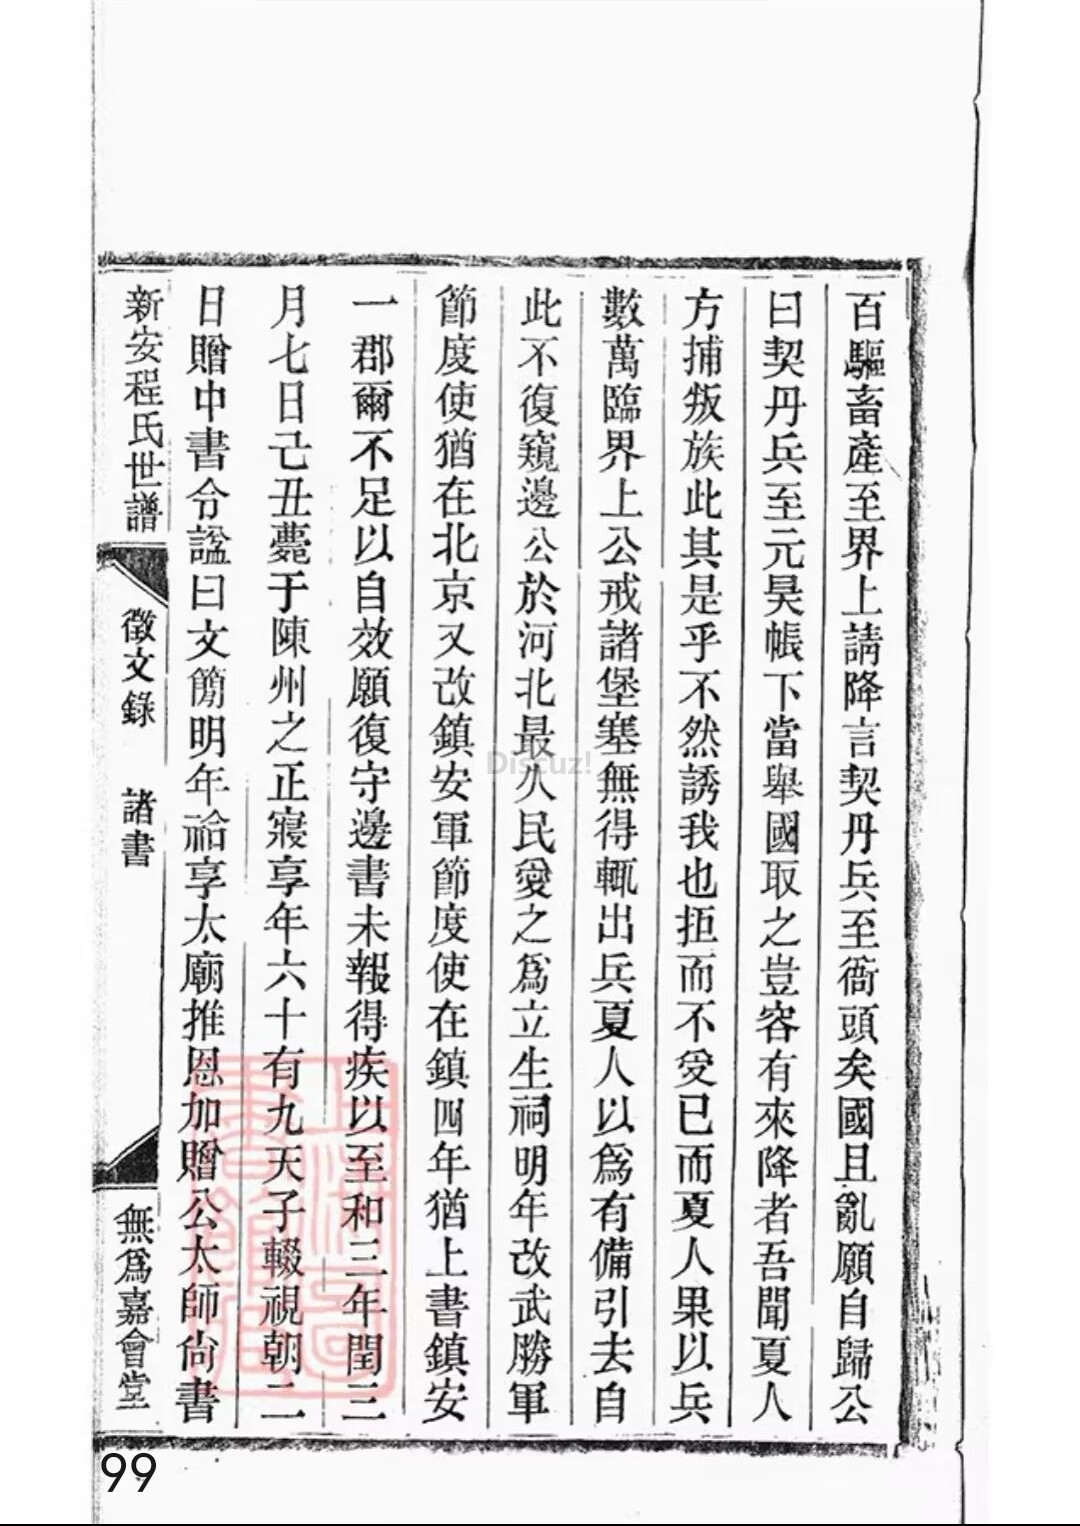 百驅畜產至界上請降言契丹兵至衙頭矣國且亂願自歸公
曰契丹兵至元昊帳下當舉國取之豈容有來降者吾聞夏人
方捕叛族此其是乎不然誘我也拒而不受已而夏人果以兵
數萬臨界上公戒諸堡塞無得輒出兵夏人以爲有備引去自
此不復窺邊公於河北最久民愛之爲立生祠明年改武勝軍
節度使猶在北京又改鎮安軍節度使在鎮四年猶上書鎮安
一郡爾不足以自效願復守邊書未報得疾以至和三年閏三
月七日己丑薨于陳州之正寢享年六十有九天子輟視朝二
日贈中書令諡曰文簡明年祫享太廟推恩加贈公太師尙書
新安程氏世譜
徵文錄 諸書
無爲嘉會堂
Discuz!
99